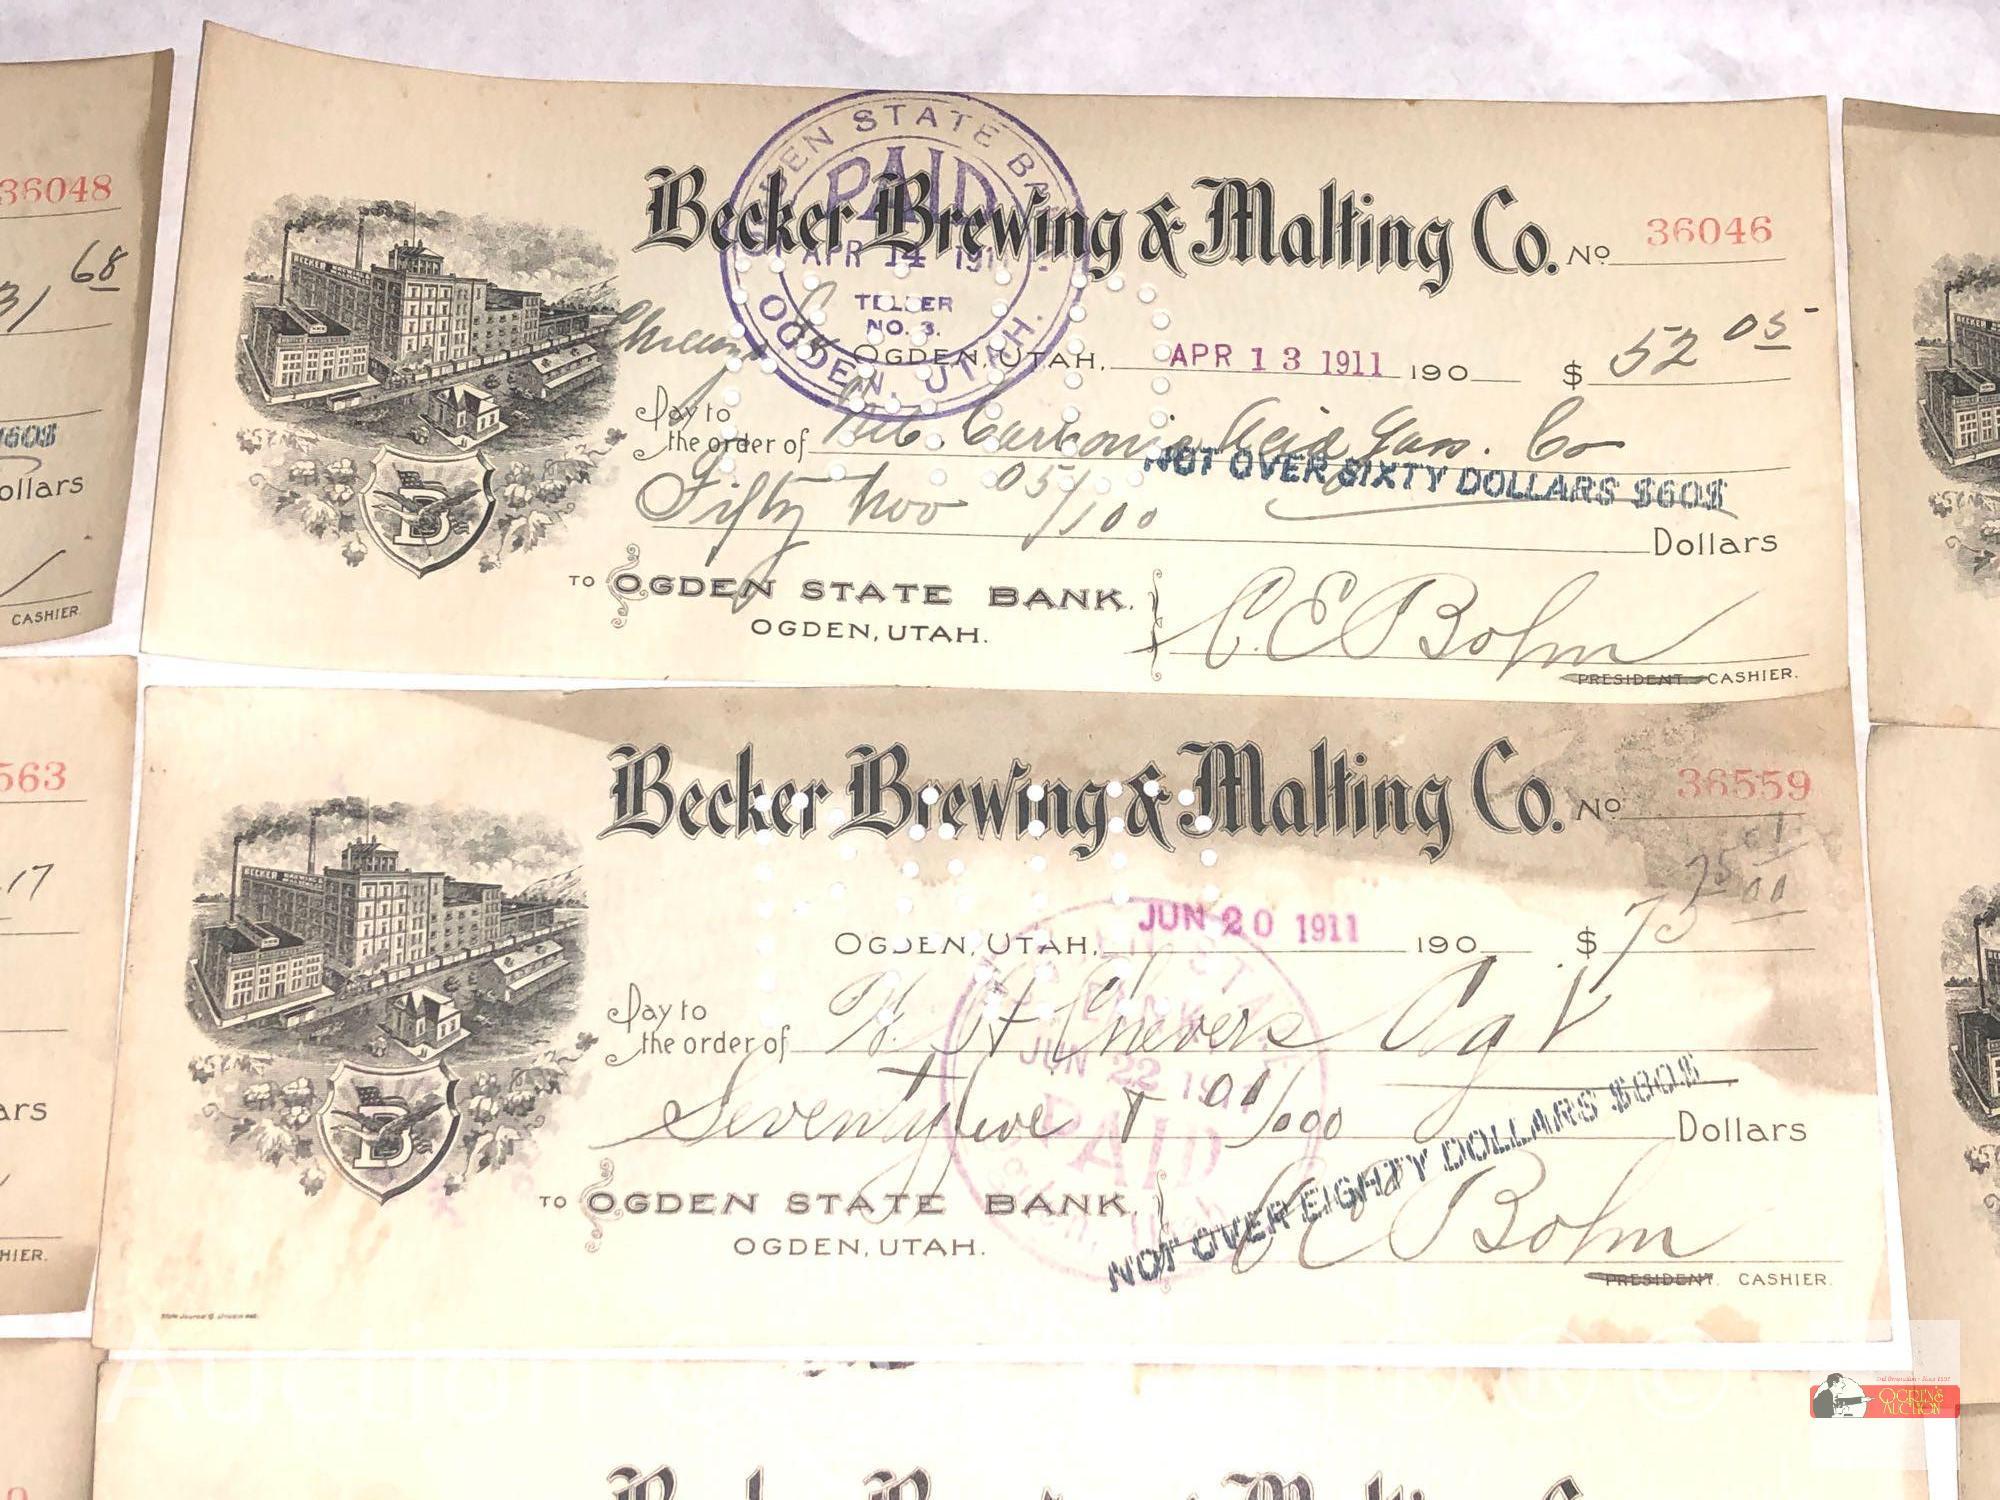 36048
68
31
60$
ollars
CASHIER
OGDEN STATE BANK
PAID
APR 14 191
TELLER
NO. 3.
OGDEN, UTAH.
Becker Brewing & Malting Co. No 36046
BECKER BREWING &
OGDEN, UTAH, APR 13 1911 190 $ 52 05
Pay to
the order of Nat. Carbonic Acid Gas. Co
NOT OVER SIXTY DOLLARS $60$
Fifty two 05/100 Dollars
B
TO OGDEN STATE BANK.
OGDEN, UTAH.
C. E. Bohm
PRESIDENT. CASHIER.
563
17
ars
HIER.
Becker Brewing & Malting Co. No 36559
BECKER BREWING &
OGDEN, UTAH, JUN 20 1911 190 $ 75 01
00
Pay to
the order of W. H. Chevers Agt
JUN 22 1911
PAID
Seventy five + 00/000 Dollars
NOT OVER EIGHTY DOLLARS $80$
B
TO OGDEN STATE BANK.
OGDEN, UTAH.
C E Bohm
PRESIDENT. CASHIER.
Auction
OGREN'S
AUCTION
Becker Brewing & Malting Co.